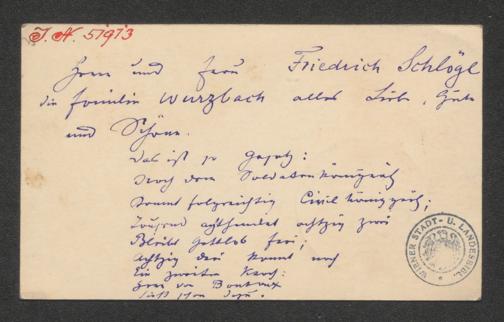 J. N. 51913
Herrn und Frau Friedrich Schlögl
die Familie Wurzbach alles Liebe, Gute
und Schöne.
Das ist so Gesetz:
Nach dem Soldatenkönigreich
kommt folgerichtig Civilkönigreich;
Tausend achthundert achtzig zwei
Bleibt Gottlob frei;
Achtzig drei kommt noch
Ein zweiter
Frei von
WIENER STADT- U. LANDESBIBL.